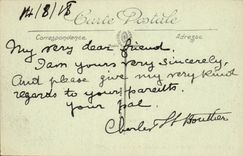 14/8/18
Carte Postale
Correspondance
Adresse
My very dear friend.
I am yours very sincerely,
And please give my very kind
regards to your parents.
Your pal.
Charles St